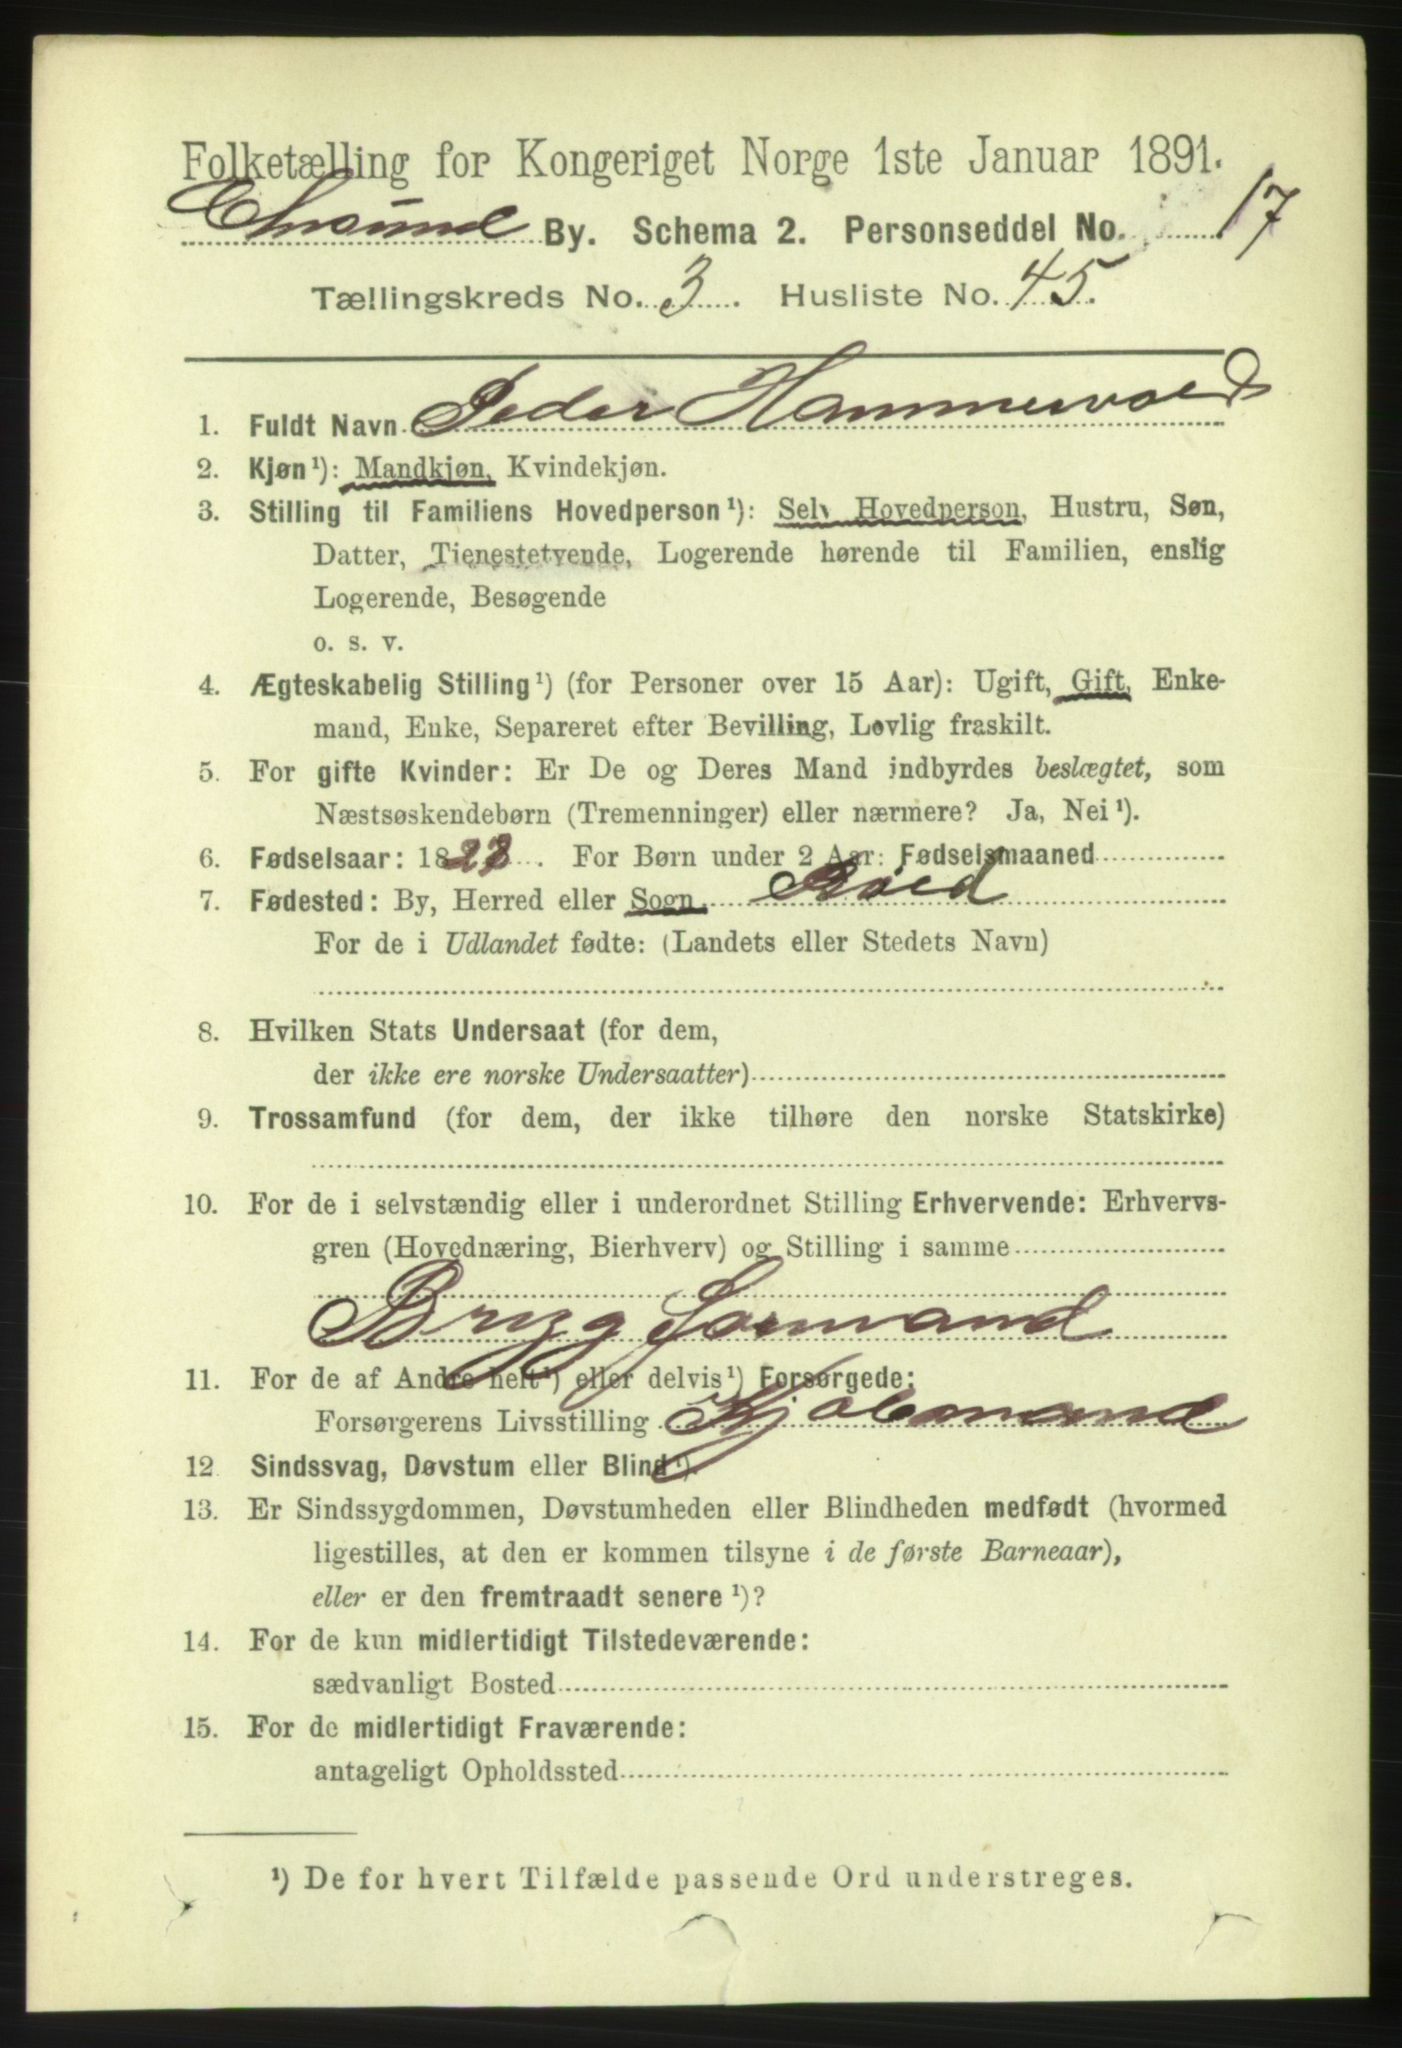 Folketælling for Kongeriget Norge 1ste Januar 1891.
Chrsund By. Schema 2. Personseddel No. 17
Tællingskreds No. 3. Husliste No. 45.
1. Fuldt Navn Peder Hammervold
2. Kjøn¹): Mandkjøn, Kvindekjøn.
3. Stilling til Familiens Hovedperson¹): Selv Hovedperson, Hustru, Søn,
Datter, Tjenestetyende, Logerende hørende til Familien, enslig
Logerende, Besøgende
o. s. v.
4. Ægteskabelig Stilling¹) (for Personer over 15 Aar): Ugift, Gift, Enke-
mand, Enke, Separeret efter Bevilling, Lovlig fraskilt.
5. For gifte Kvinder: Er De og Deres Mand indbyrdes beslægtet, som
Næstsøskendebørn (Tremenninger) eller nærmere? Ja, Nei¹).
6. Fødselsaar: 18 . For Børn under 2 Aar: Fødselsmaaned
7. Fødested: By, Herred eller Sogn
For de i Udlandet fødte: (Landets eller Stedets Navn)
8. Hvilken Stats Undersaat (for dem,
der ikke ere norske Undersaatter)
9. Trossamfund (for dem, der ikke tilhøre den norske Statskirke)
10. For de i selvstændig eller i underordnet Stilling Erhvervende: Erhvervs-
gren (Hovednæring, Bierhverv) og Stilling i samme
Brygg Formand
11. For de af Andre helt¹) eller delvis¹) Forsørgede:
Forsørgerens Livsstilling Kjøbmand
12 Sindssvag, Døvstum eller Blind¹).
13. Er Sindssygdommen, Døvstumheden eller Blindheden medfødt (hvormed
ligestilles, at den er kommen tilsyne i de første Barneaar),
eller er den fremtraadt senere¹)?
14. For de kun midlertidigt Tilstedeværende:
sædvanligt Bosted
15. For de midlertidigt Fraværende:
antageligt Opholdssted
¹) De for hvert Tilfælde passende Ord understreges.